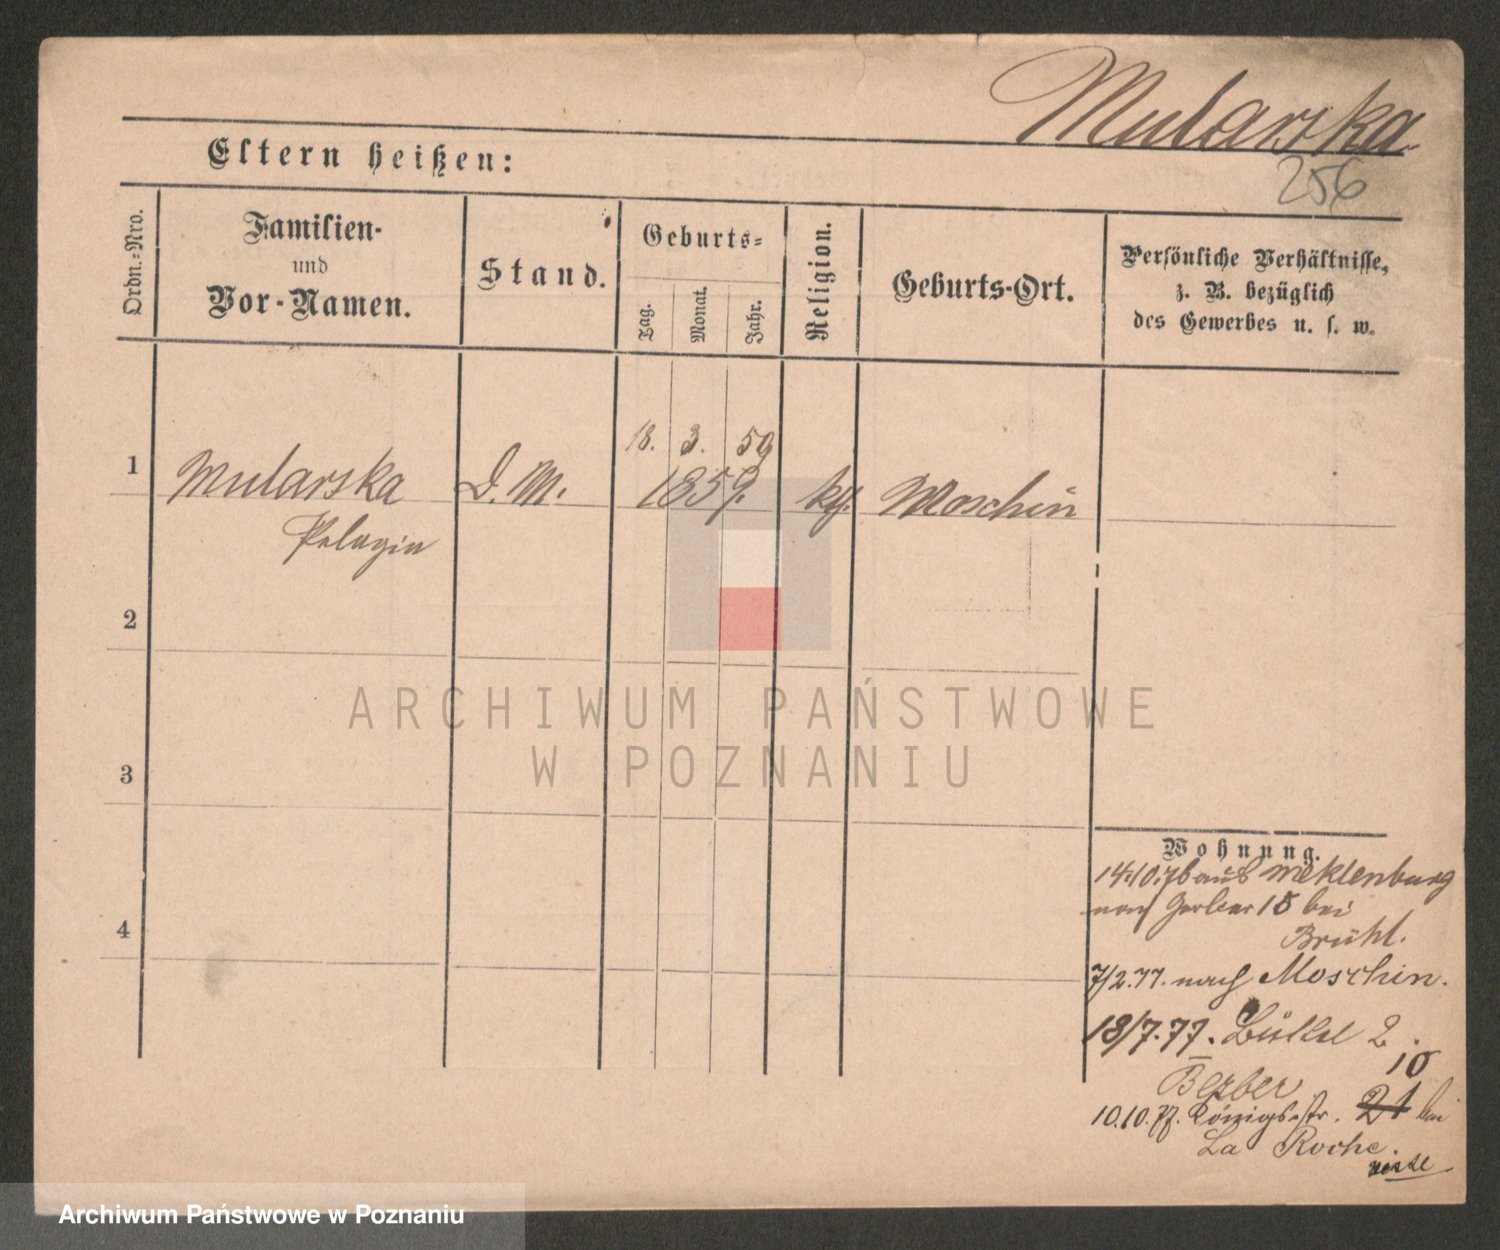 Mularska
256
Eltern heißen:
Ordn.-Nro.
Familien-
und
Vor-Namen.
Stand.
Geburts-
Tag.
Monat.
Jahr.
Religion.
Geburts-Ort.
Persönliche Verhältnisse,
z. B. bezüglich
des Gewerbes u. s. w.
18. 3. 59
1 Mularska D. M. 1859. kg. Moschin
Pelagia
2
3
4
ARCHIWUM PAŃSTWOWE
W POZNANIU
Wohnung.
14.10.76 aus Meklenburg
nach Gerber 18 bei
Brühl.
7/2.77. nach Moschin.
18/7.77. 2.
10
10.10.77. Königsstr. 21 bei
La Roche.
Archiwum Państwowe w Poznaniu